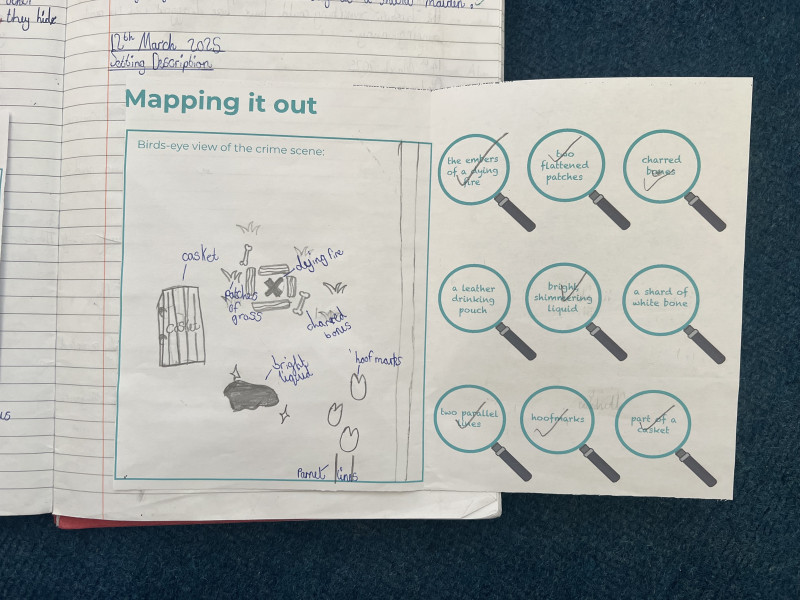 , they hide
12th March 2025
Setting Description
Mapping it out
Birds-eye view of the crime scene:
casket
dying fire
patches
of
grass
casket
charred
bones
bright
liquid
hoofmarks
the embers
of a dying
fire
two
flattened
patches
charred
bones
a leather
drinking
pouch
bright,
shimmering
liquid
a shard of
white bone
two parallel
lines
hoofmarks
part of a
casket